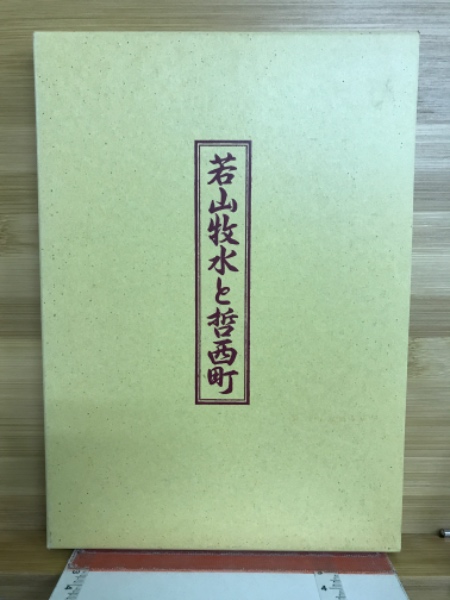 若山牧水と哲西町